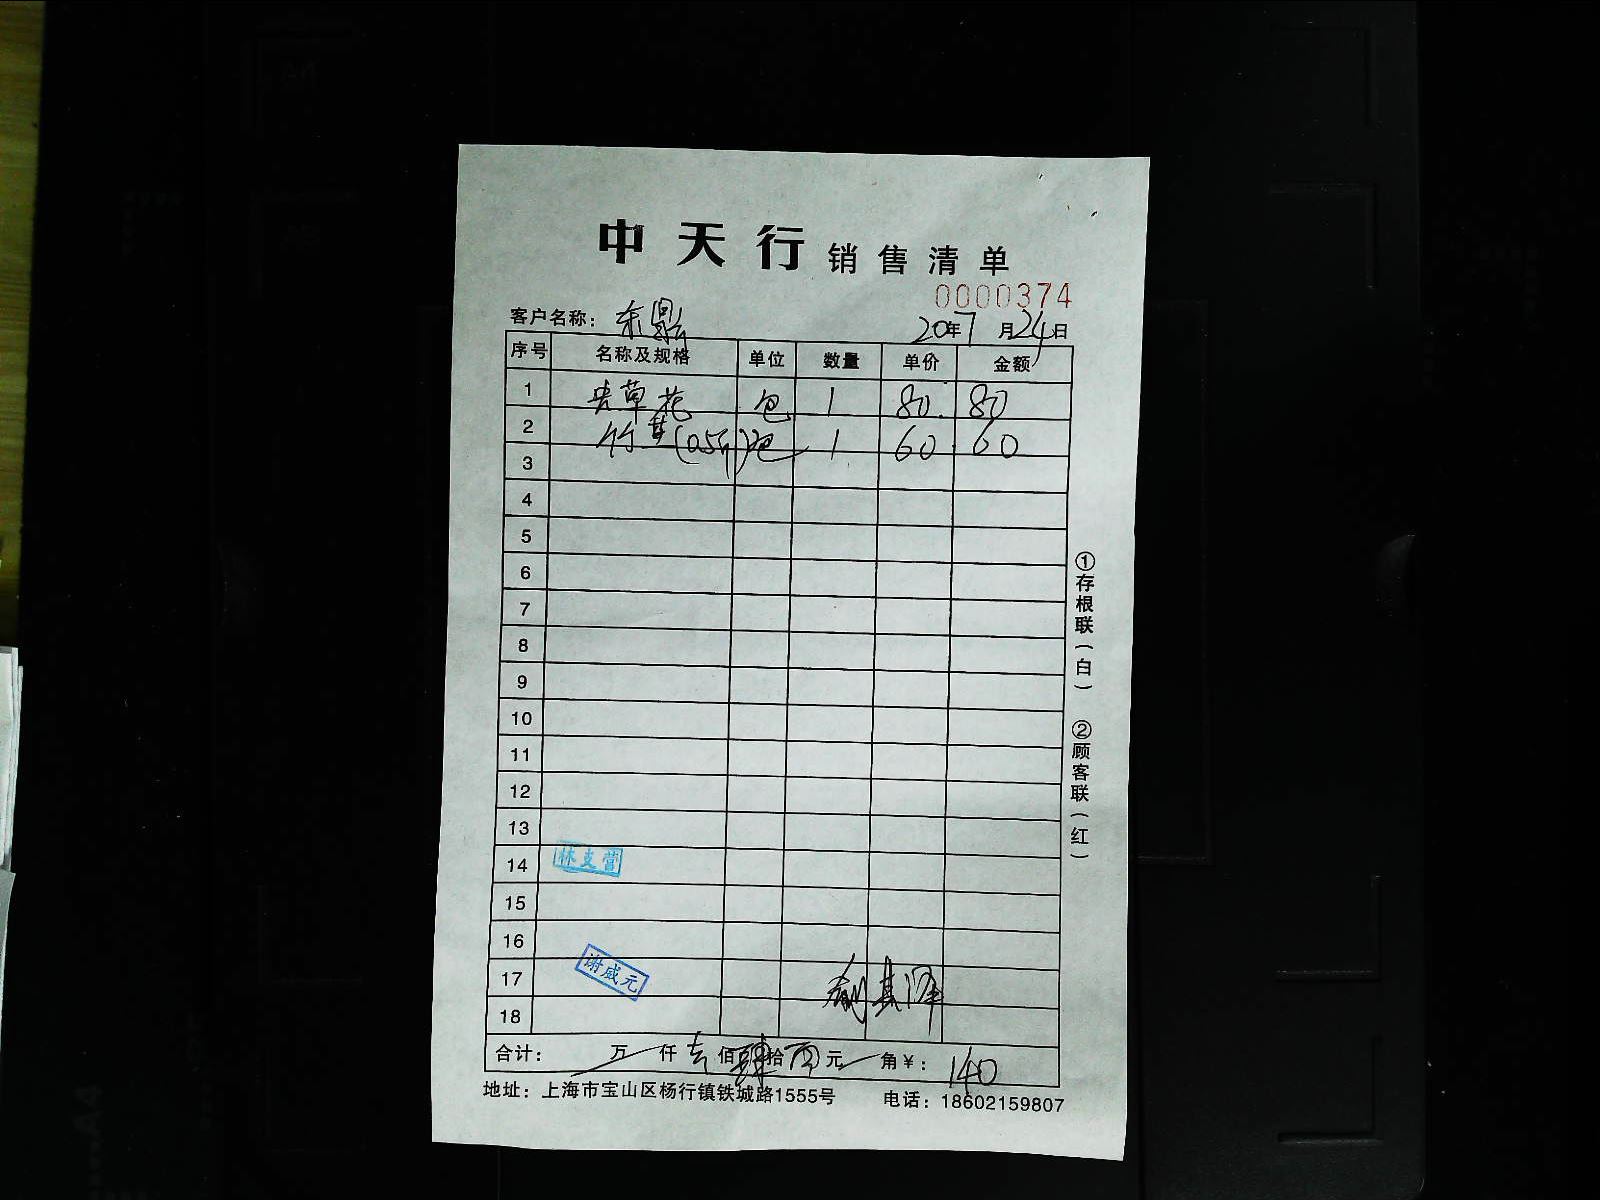 中天行销售清单
0000374
客户名称：东鼎
20年7月24日
序号 名称及规格 单位 数量 单价 金额
1 虫草花 包 1 80. 80
2 竹荪(0.5斤) 包 1 60. 60
3
4
5
6
7
8
9
10
11
12
13
14 林支营
15
16
17 谢威元
18
合计： 万 仟 壹 佰 肆 拾 元 角 ¥： 140
地址：上海市宝山区杨行镇铁城路1555号 电话：18602159807
①存根联（白） ②顾客联（红）